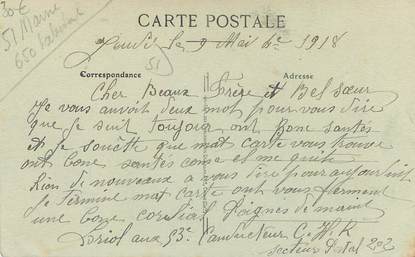 30€
51 Marne
650
CARTE POSTALE
Jeudi le 9 Mai 1918
Correspondance
51
Adresse
Cher Beaux Frège et Bel sœur
Je vous anvoit deux mot pour vous dire
que je suit Toujour ont Bone santés
et je souette que mat carte vous trouve
ont bone santés conse et me quite
Rien de nouveaux a vous dire pour aujourduit
Je Termine mat carte ont vous serment
une bone cordial Poignes de maint
Loriol aux 53e Conducteur C. H. R
secteur Postal 202